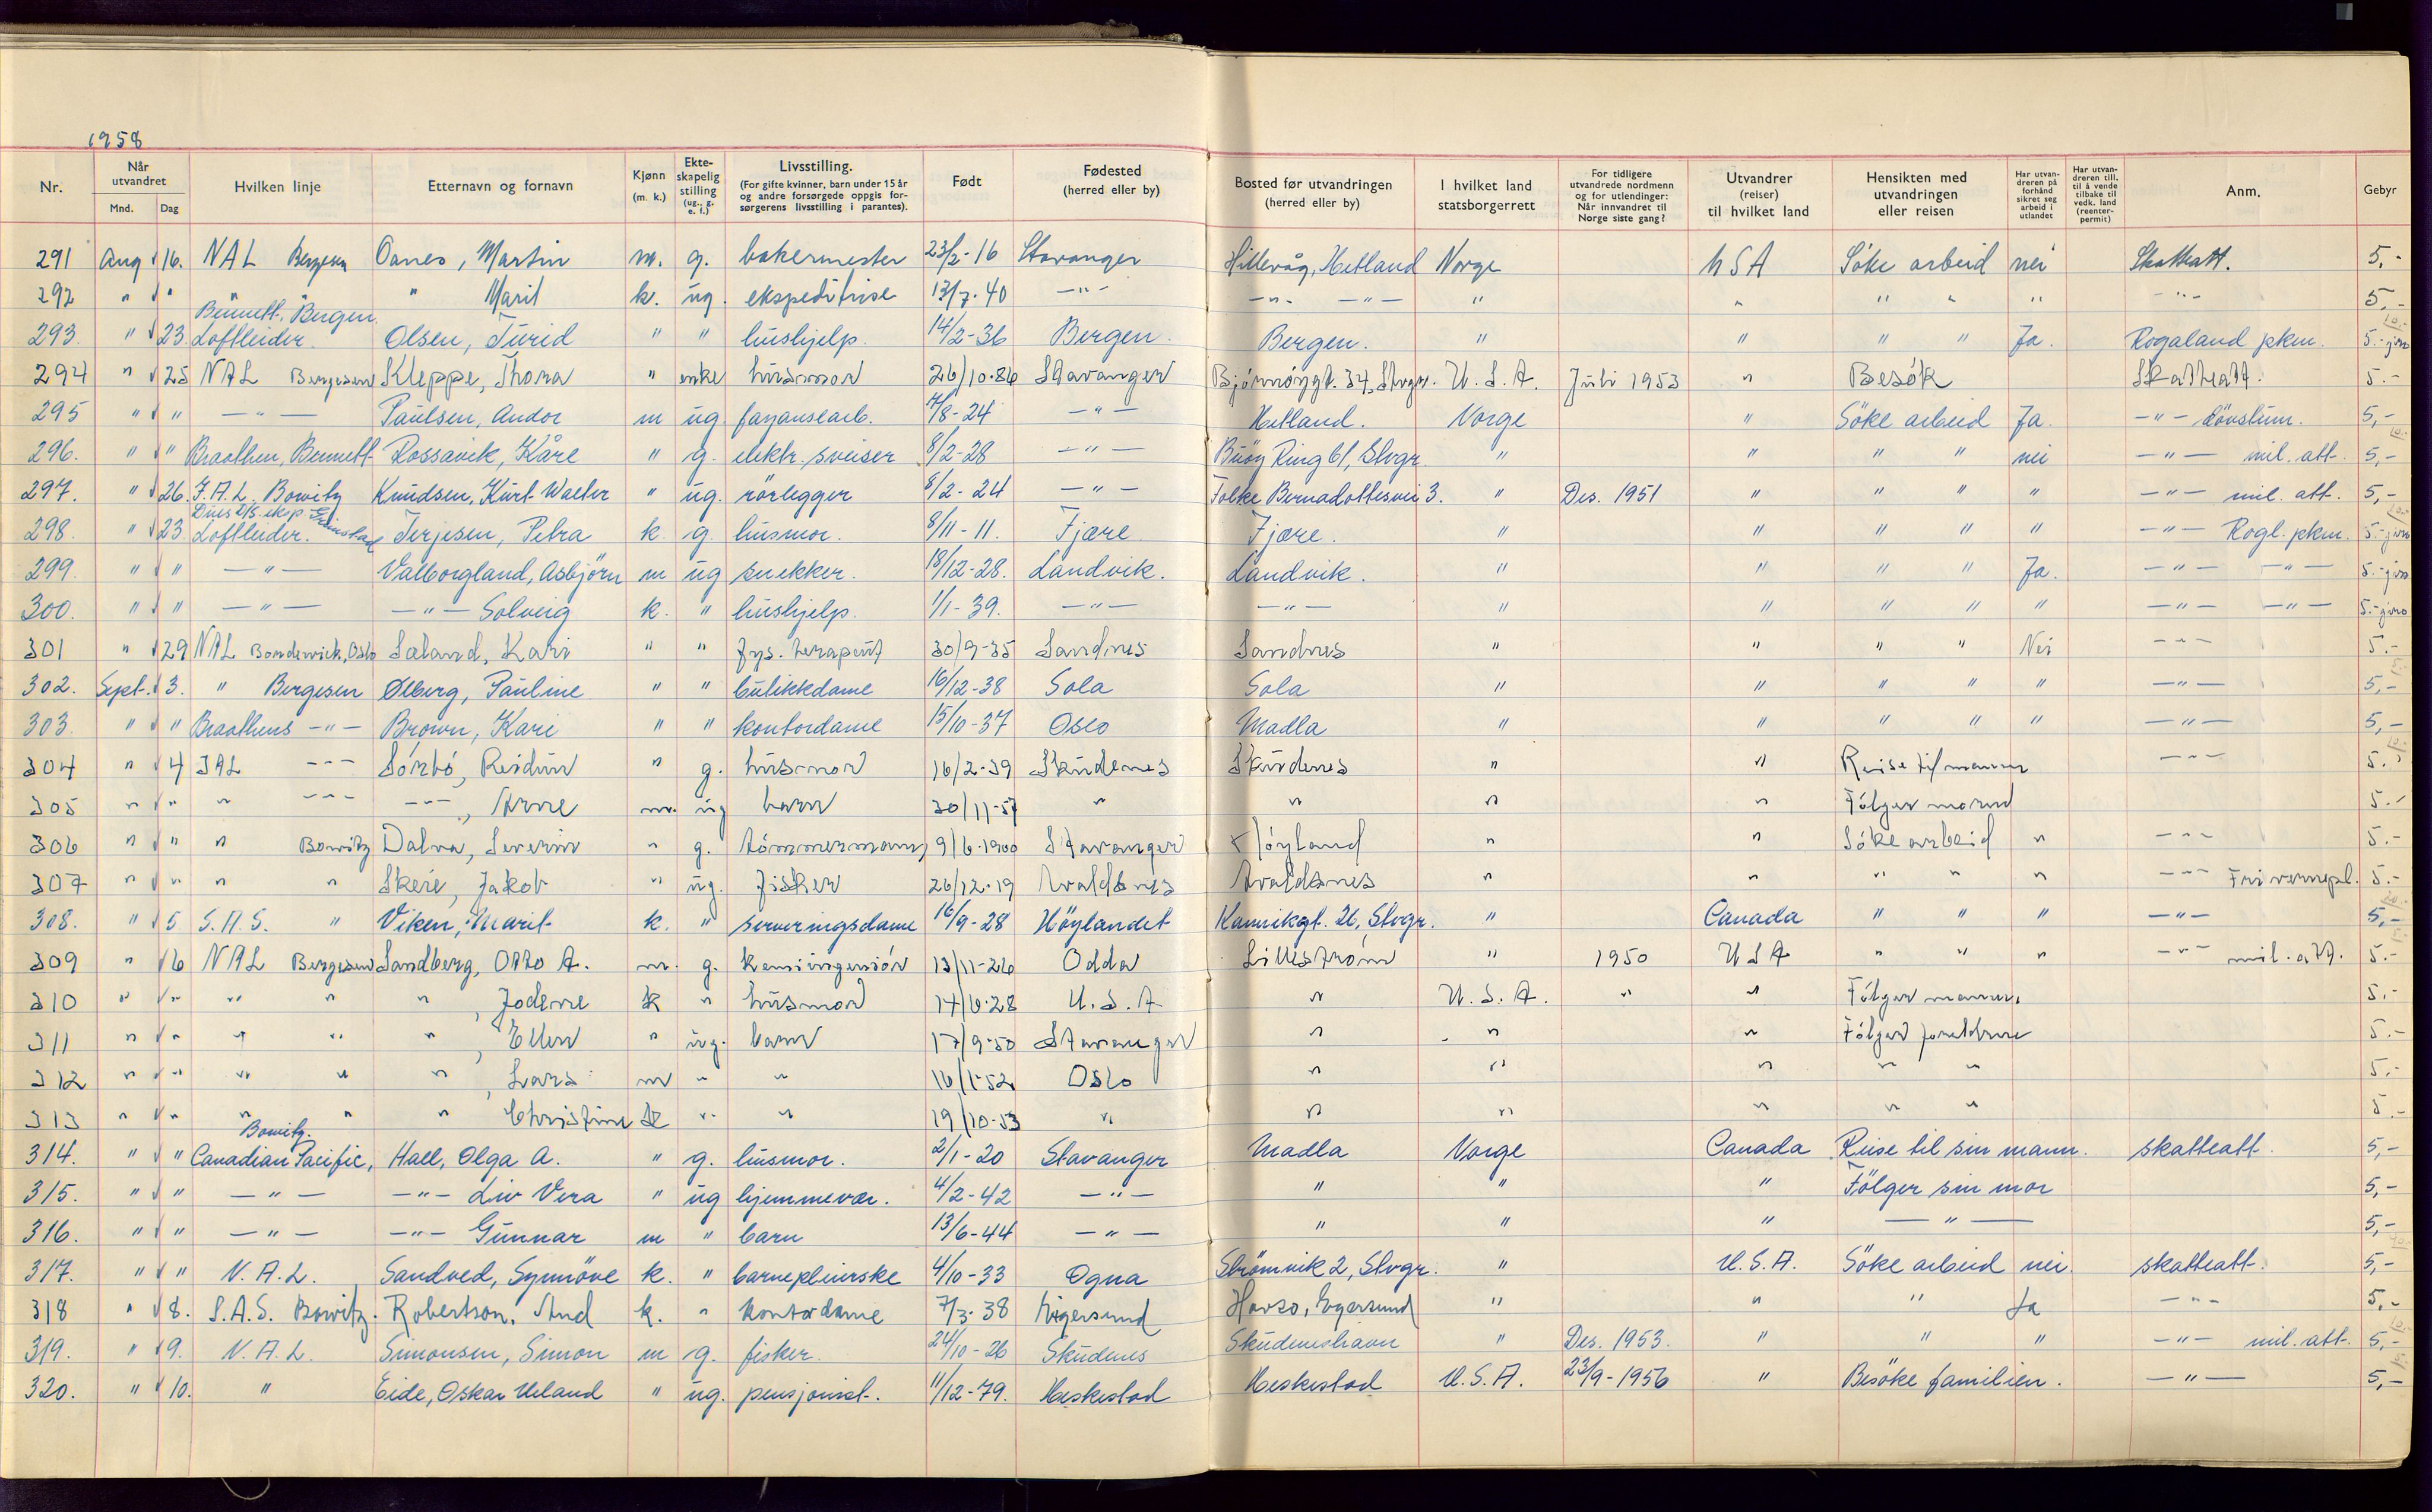 1958
Nr. Når utvandret Mnd. Dag Hvilken linje Etternavn og fornavn Kjønn (m. k.) Ekteskapelig stilling (ug., g. e. f.) Livsstilling. (For gifte kvinner, barn under 15 år og andre forsørgede oppgis forsørgerens livsstilling i parantes). Født Fødested (herred eller by) Bosted før utvandringen (herred eller by) I hvilket land statsborgerrett For tidligere utvandrede nordmenn og for utlendinger: Når innvandret til Norge siste gang? Utvandrer (reiser) til hvilket land Hensikten med utvandringen eller reisen Har utvandreren på forhånd sikret seg arbeid i utlandet Har utvandreren till. til å vende tilbake til vedk. land (reenterpermit) Anm. Gebyr
291 Aug 16. NAL Oanes, Martin m. g. bakermester 23/2-16 Stavanger Hillevåg, Hetland Norge USA Söke arbeid nei Skatteatt. 5,-
292 " " " Marit k. ug. ekspeditrise 13/7-40 -"- -"- -"- " " " " " -"- 5,-
Bennett, Bergen.
293. " 23 Loftleider. Olsen, Turid " " hushjelp. 14/2-36 Bergen. Bergen. " " " " Ja. Rogaland pkm. 5.- giro
294 " 25 NAL Bergesen Kleppe, Thora " enke husmor 26/10-86 Stavanger Bjórnóygt. 34, Stvgr. U.S.A. Juli 1953 " Besók Skatteatt. 5.-
295 " " -"- Paulsen, Andor m ug. fayansearb. 7/8-24 -"- Hetland. Norge " Söke arbeid Ja. -"- dövstum. 5,-
296. " " Braathen, Bennett Rossavik, Kåre " g. elektr. sveiser 8/2-28 -"- Buöy Ring 61, Stvgr. " " " " nei -"- mil. att. 5,-
297. " 26. F.A.L. Bowitz Knudsen, Kurt Walter " ug. rörlegger 8/2-24 -"- Folke Bernadottesvei 3. " Des. 1951 " " " " -"- mil. att. 5,-
298. " 23 Loftleider. Terjesen, Petra k. g. husmor. 8/11-11. Fjære Fjære. " " " " " -"- Rogl. pkm. 5.- giro
299. " " -"- Valborgland, Asbjörn m ug snekker. 18/12-28. Landvik. Landvik. " " " " Ja. -"- -"- 5.- giro
300. " " -"- -"- Solveig k. " hushjelp. 1/1-39. -"- -"- " " " " " -"- -"- 5.- giro
301 " 29 NAL Bondevick, Oslo Saland, Kari " " fys. terapeut 30/9-35 Sandnes Sandnes " " " " Nei -"- 5.-
302. Sept. 3. " Bergesen Ølberg, Pauline " " butikkdame 16/12-38 Sola Sola " " " " " -"- 5,-
303. " " Braathens -"- Brown, Kari " " kontordame 15/10-37 Oslo Madla " " " " " -"- 5,-
304 " 4 Sórbó, Reidun " g. husmor 16/2-39 Skudenes Skudenes " " Reise til mannen -"- 5.-
305 " " " -"- -"-, Arne m. ug barn 30/11-57 " " " " Fólger moren 5.-
306 " " " Bowitz Dalva, Severin " g. tómmermann 9/6-1900 Stavanger Hóyland " " Sóke arbeid " -"- 5.-
307 " " " " Skeie, Jakob " ug. fisker 26/12-19 Avaldsnes Avaldsnes " " " " " -"- Fri vernepl. 5.-
308. " 5. S.A.S. " Viken, Marit k. " serveringsdame 16/9-28 Höylandet Kannikgt. 26, Stvgr. " Canada " " " -"- 5,-
309 " 6 NAL Bergesen Sandberg, Otto A. m. g. kemiingeniór 13/11-26 Odda Lillestróm " 1950 USA " " " -"- mil. att. 5.-
310 " " " " ", Jodene k " husmor 14/6-28 U.S.A " U.S.A. " " Fólger mannen. 5.-
311 " " " " ", Ellen " ug. barn 17/9-50 Stavanger " " " Fólger foreldrene 5.-
312 " " " " ", Lars m " " 16/1-52 Oslo " " " " " 5.-
313 " " " " " Christine k " " 19/10-53 " " " " " " 5.-
Bowitz.
314. " " Canadian Pacific, Hall, Olga A. " g. husmor. 2/1-20 Stavanger Madla Norge Canada Reise til sin mann. skatteatt. 5,-
315. " " -"- -"- Liv Vera " ug hjemmevær. 4/2-42 -"- " " " Fölger sin mor 5,-
316. " " -"- -"- Gunnar m " barn 13/6-44 -"- " " " -"- 5,-
317. " " N.A.L. Sandved, Synnöve k. " barnepleierske 4/10-33 Ogna Strömvik 2, Stvgr. " U.S.A. Söke arbeid nei. skatteatt. 5,-
318 " 8. S.A.S. Bowitz. Robertson, Aud k. " kontordame 7/3-38 Egersund Havsö, Egersund " " " Ja -"- 5,-
319. " 9. N.A.L. Simonsen, Simon m g. fisker. 24/10-26 Skudenes Skudeneshavn " Des. 1953. " " " -"- mil. att. 5,-
320. " 10. " Eide, Oskar Ueland " ug. pensjonist. 11/12-79. Heskestad Heskestad U.S.A. 23/9-1956 " Besöke familien. -"- 5,-